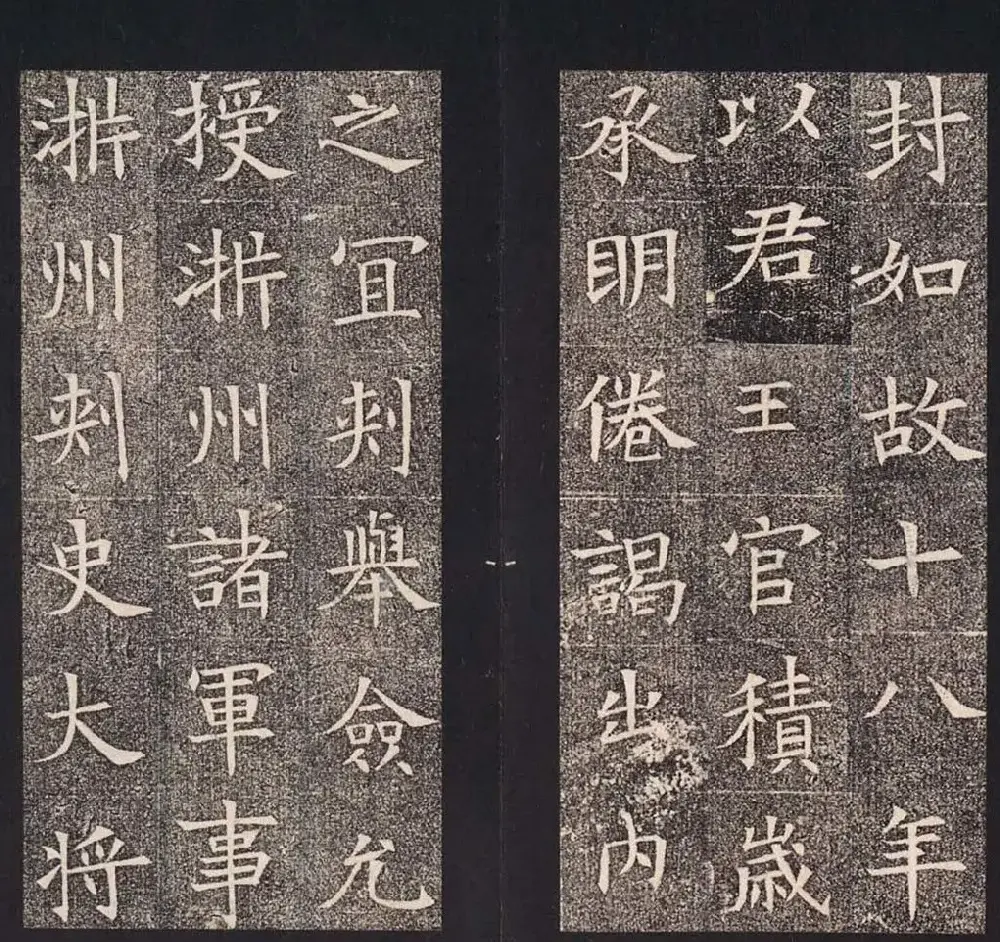 封如故十八年
以君王官積歲
承明倦謁出内
之宜刾舉僉允
授淅州諸軍事
淅州刾史大将